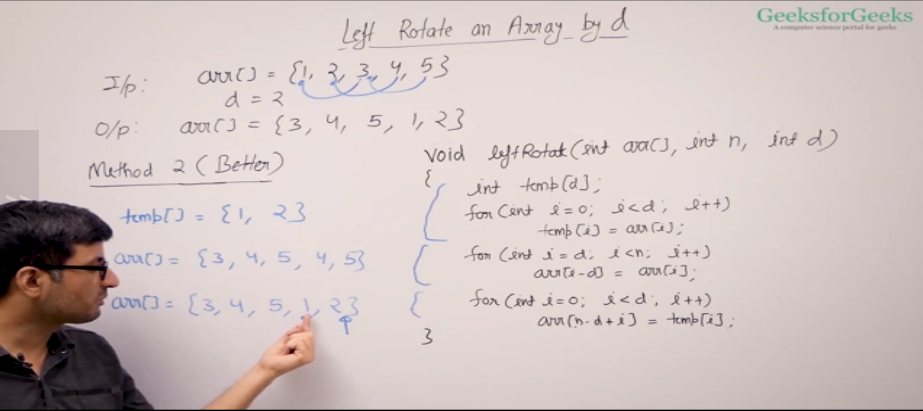 Left Rotate an Array by d
GeeksforGeeks
A computer science portal for geeks
I/p: arr[] = {1, 2, 3, 4, 5}
d = 2
O/p: arr[] = {3, 4, 5, 1, 2}
Method 2 (Better)
temp[] = {1, 2}
arr[] = {3, 4, 5, 4, 5}
arr[] = {3, 4, 5, 1, 2}
void leftRotate(int arr[], int n, int d)
{
int temp[d];
for (int i=0; i<d; i++)
temp[i] = arr[i];
for (int i=d; i<n; i++)
arr[i-d] = arr[i];
for (int i=0; i<d; i++)
arr[n-d+i] = temp[i];
}